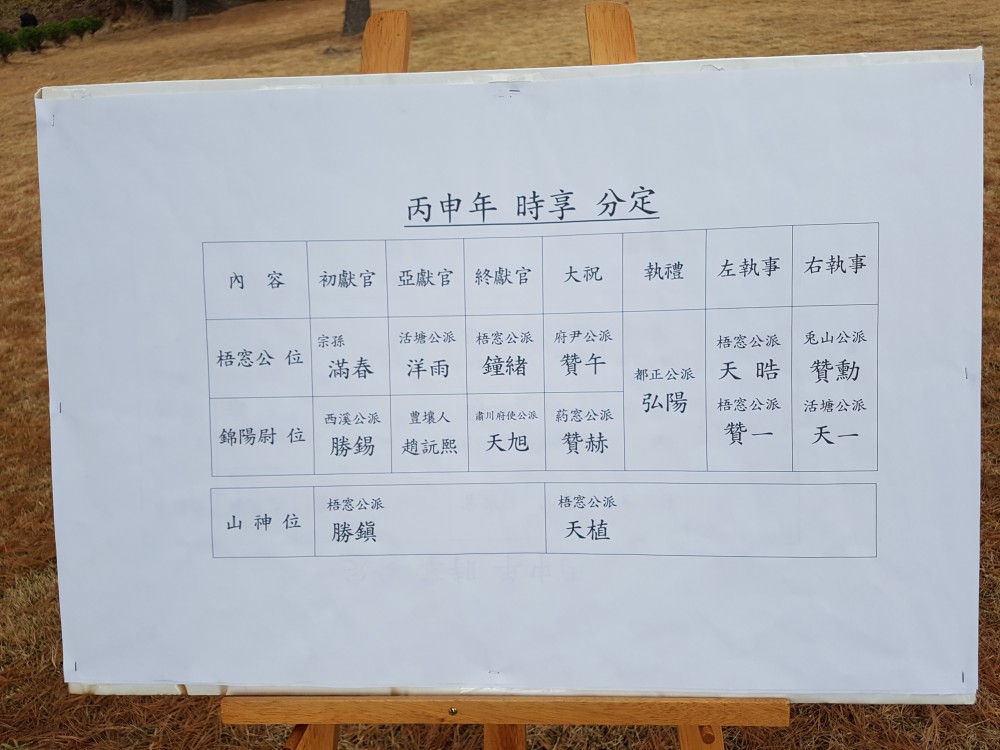 丙申年 時享 分定
內 容 初獻官 亞獻官 終獻官 大祝 執禮 左執事 右執事
梧窓公 位
宗孫
滿春
活塘公派
洋雨
梧窓公派
鐘緖
府尹公派
贊午
都正公派
弘陽
梧窓公派
天晧
梧窓公派
贊一
兎山公派
贊勳
活塘公派
天一
錦陽尉 位
西溪公派
勝錫
豊壤人
趙訦熙
肅川府使公派
天旭
葯窓公派
贊赫
山 神 位
梧窓公派
勝鎭
梧窓公派
天植